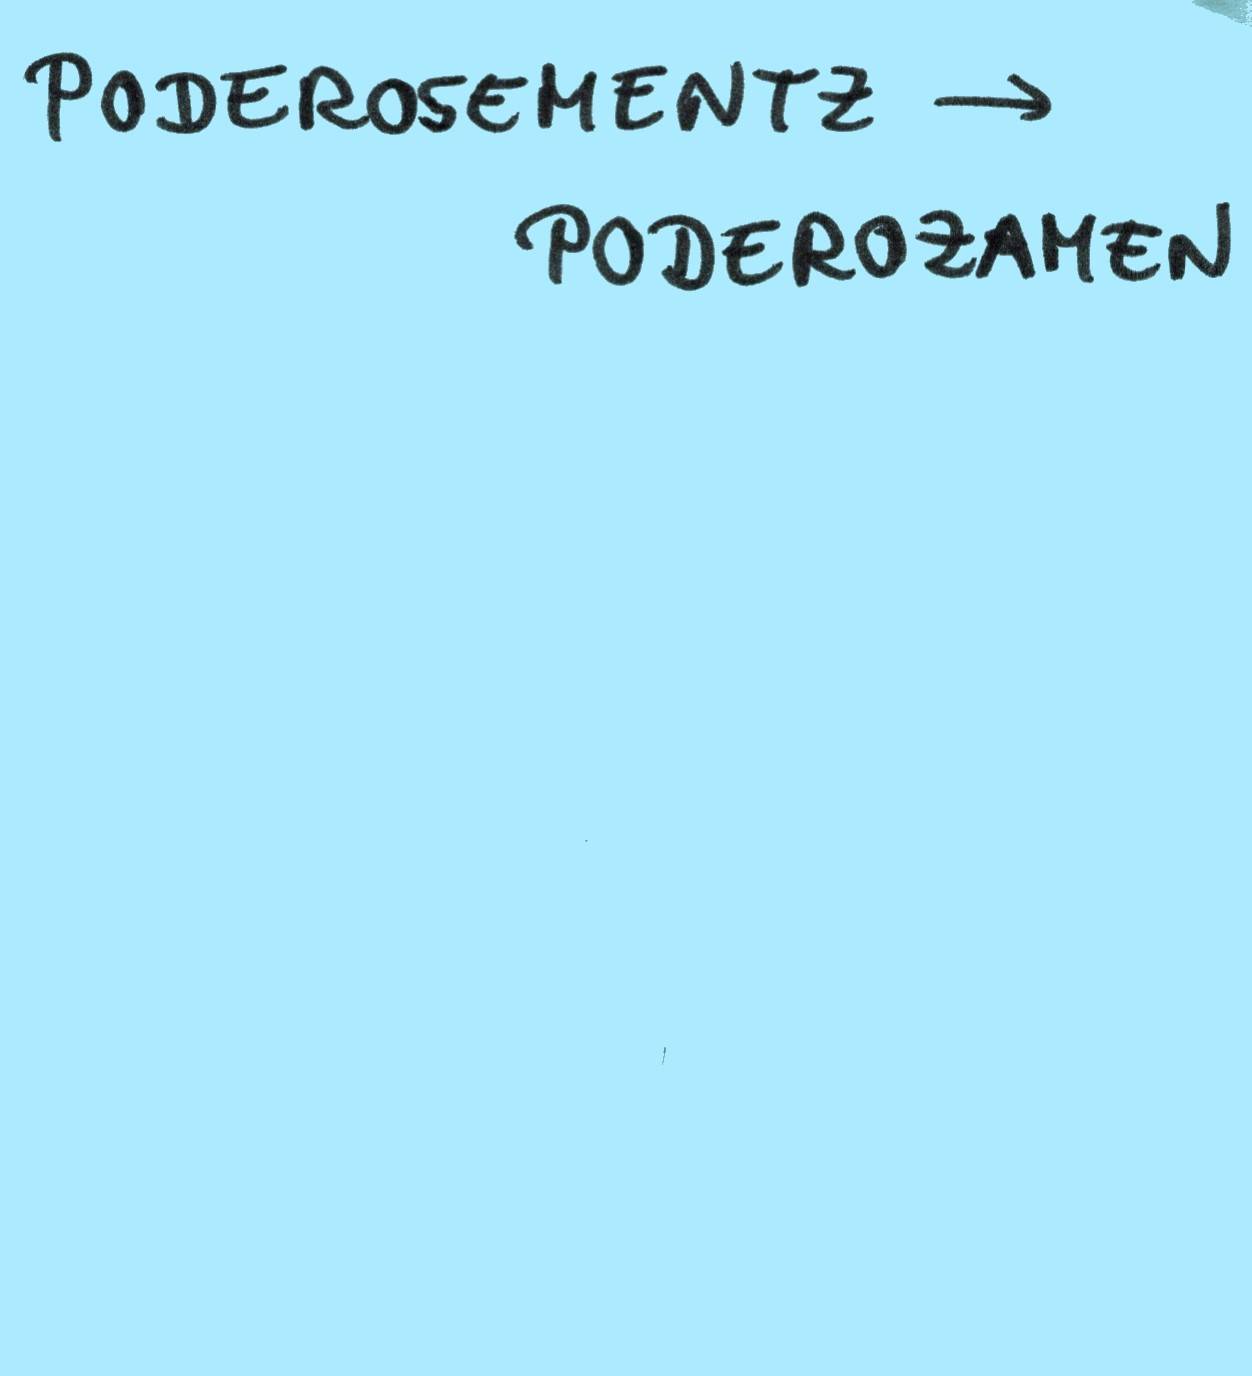 PODEROSEMENTZ →
PODEROZAMEN